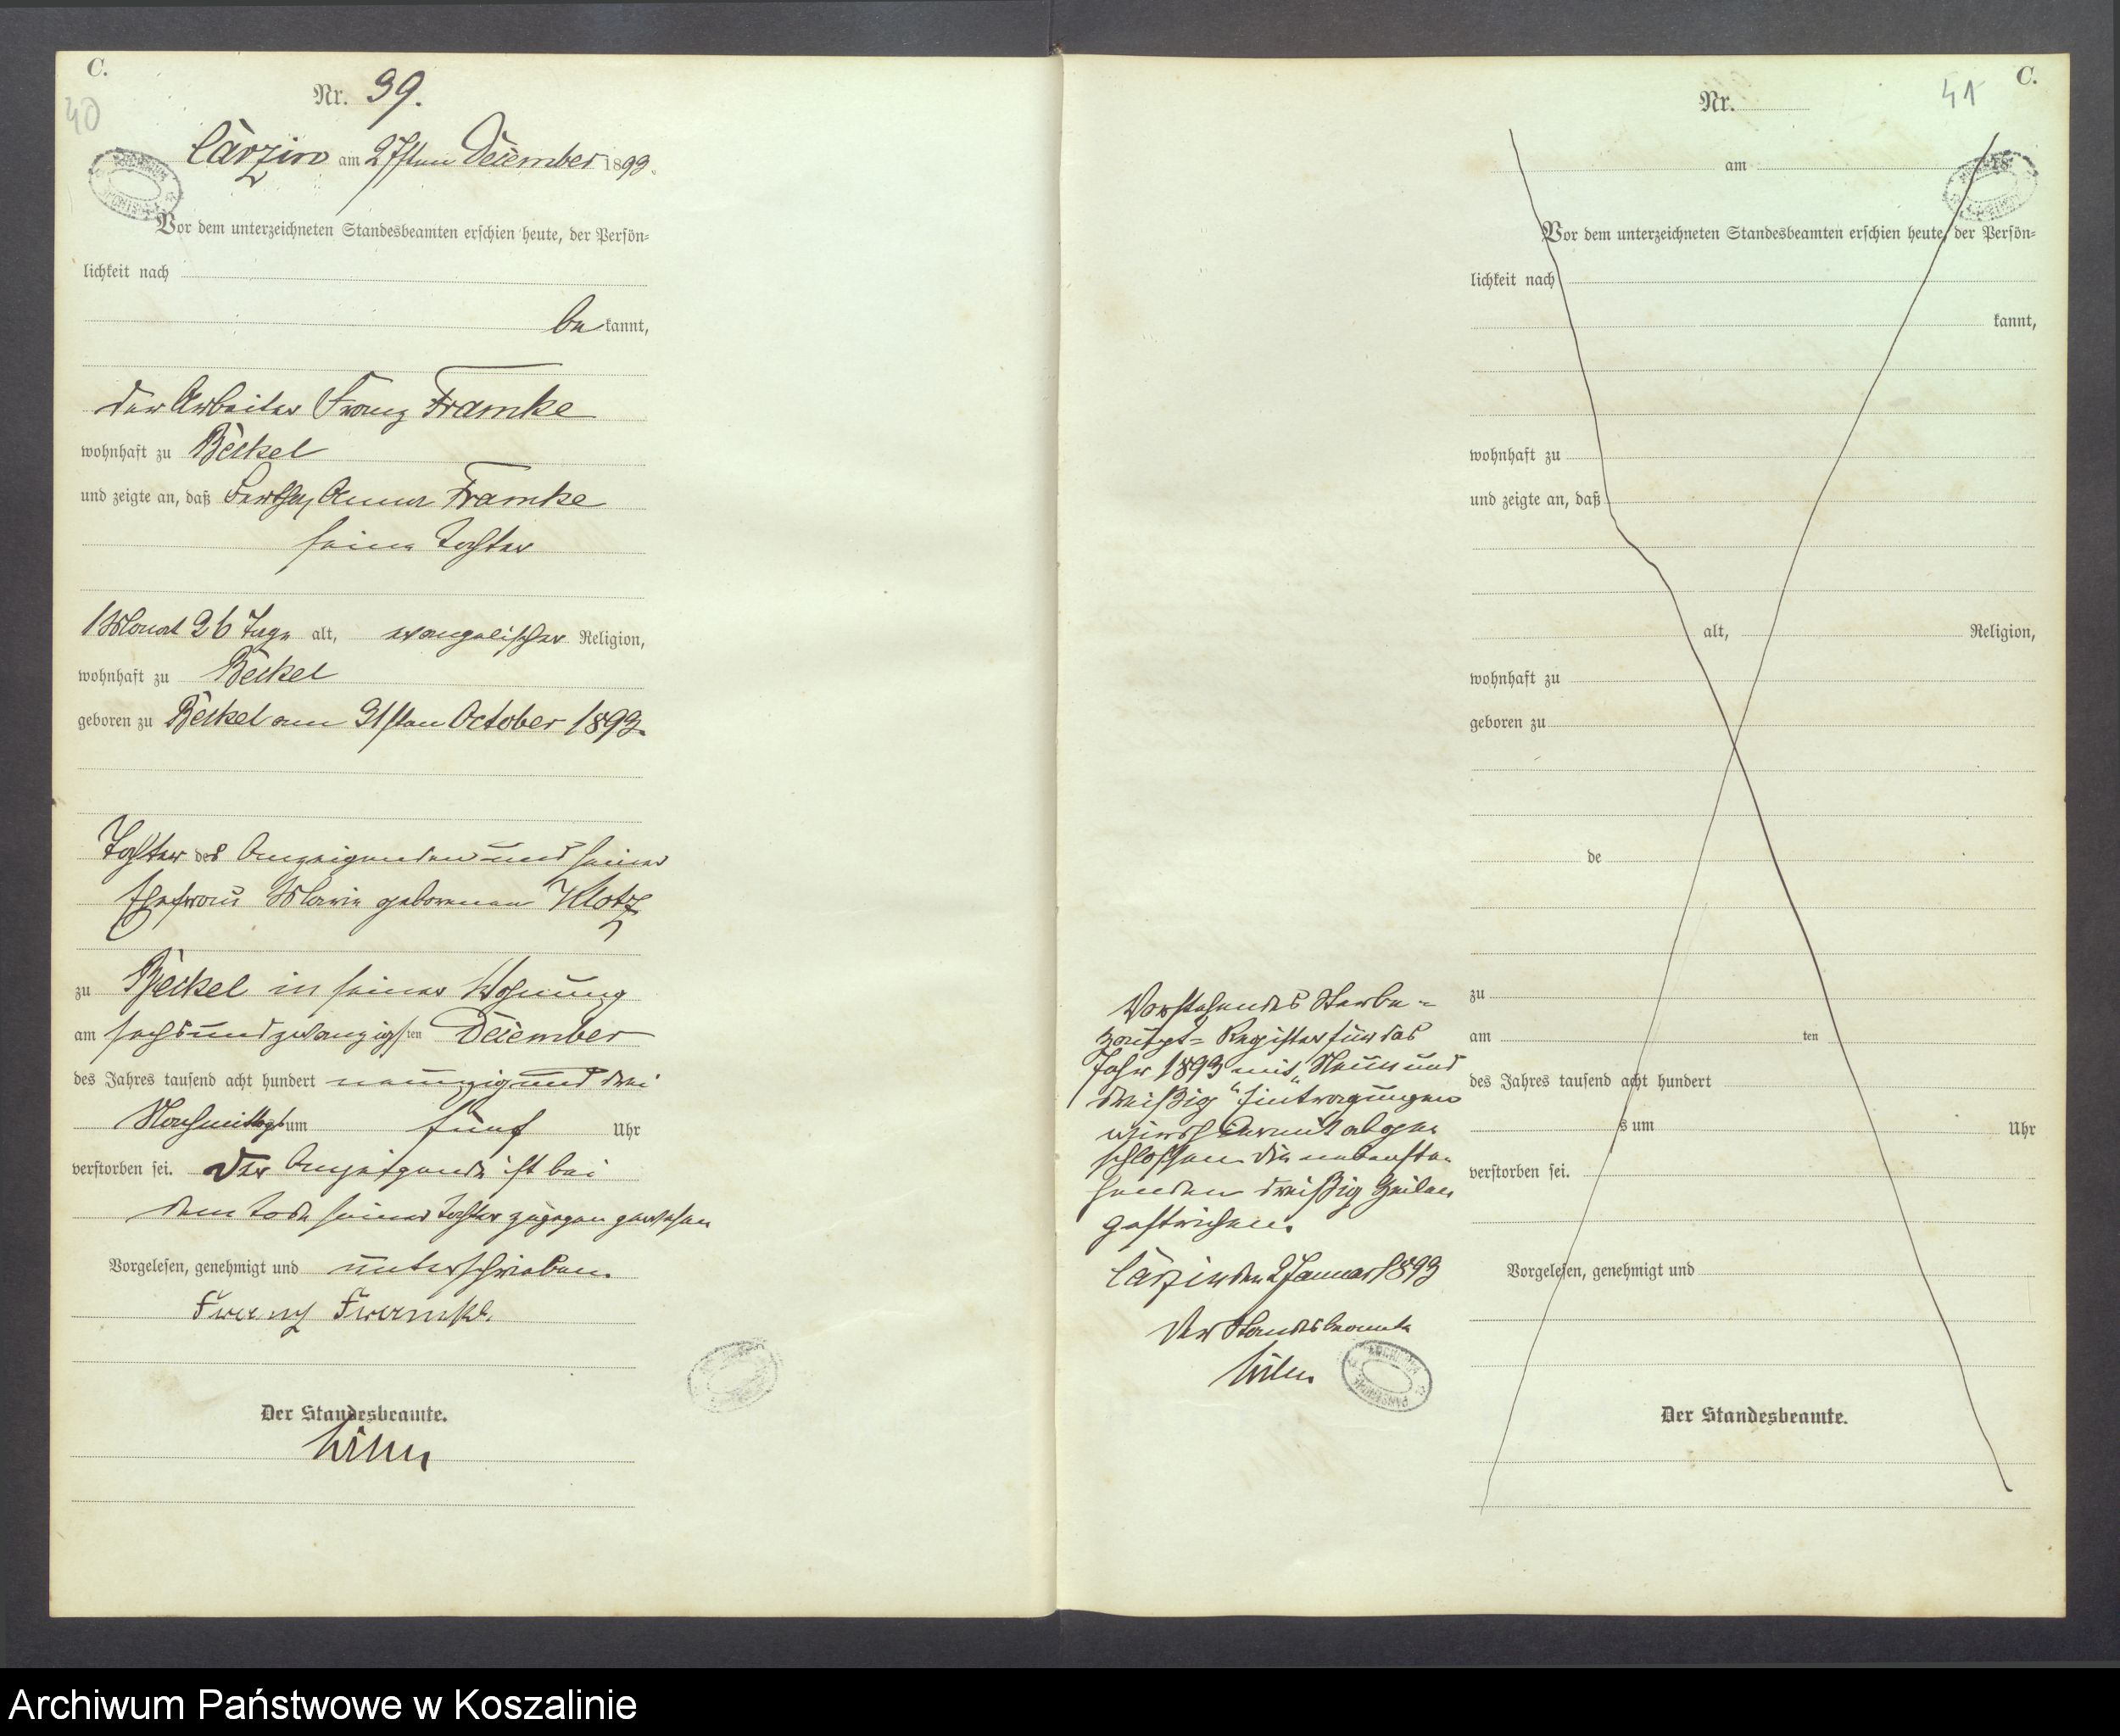 C.
40
Nr. 39.
Carzin am 27sten December 1893.
Vor dem unterzeichneten Standesbeamten erschien heute, der Persön-
lichkeit nach
be kannt,
der Arbeiter Franz Framke
wohnhaft zu Beckel
und zeigte an, daß Bertha, Anna Framke
seine Tochter
1 Monat 26 Tage alt, evangelischer Religion,
wohnhaft zu Beckel
geboren zu Beckel am 31sten October 1893.
Tochter des Anzeigenden und seiner
Ehefrau Marie geborenen Klotz
zu Beckel in seiner Wohnung
am sechsundzwanzigsten December
des Jahres tausend acht hundert neunzig und drei
Nachmittags um fünf Uhr
verstorben sei. Der Anzeigende ist bei
dem Tode seiner Tochter zugegen gewesen
Vorgelesen, genehmigt und unterschrieben.
Franz Framke.
Der Standesbeamte.
Vorstehendes Sterbe-
Haupt-Register für das
Jahr 1893 mit „Neun und
dreißig“ Eintragungen
wird hiermit abge
schlossen die nebenste-
henden dreißig Zeilen
gestrichen.
Carzin den 2 Januar 1893
Der Standesbeamte
C.
41
Nr.
am 18
Vor dem unterzeichneten Standesbeamten erschien heute, der Persön-
lichkeit nach
kannt,
wohnhaft zu
und zeigte an, daß
alt, Religion,
wohnhaft zu
geboren zu
de
zu
am ten
des Jahres tausend acht hundert
s um Uhr
verstorben sei.
Vorgelesen, genehmigt und
Der Standesbeamte.
Archiwum Państwowe w Koszalinie